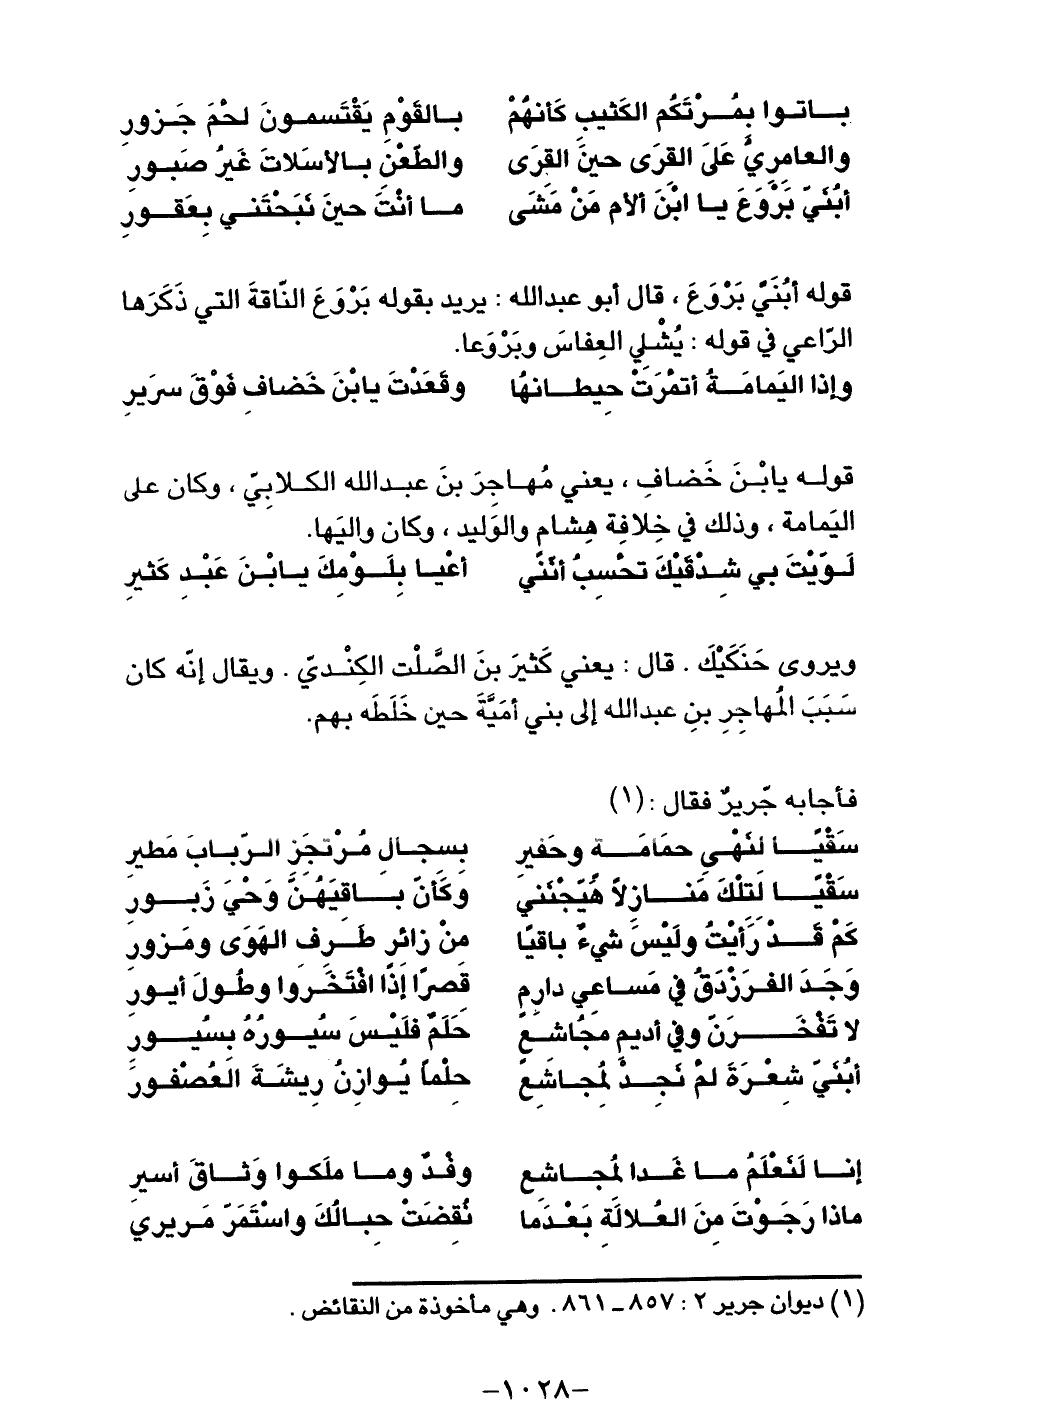 بــاتــوا بِمُــرْتَكَم الكَثيبِ كَأنهُمْ بــالقَوْمِ يَقْتَسمــونَ لحْمَ جَــزورِ
والعامرِيُّ عَلىَ القرَى حينَ القِرَى والطّعْنِ بــالأسَلاتَ غَيرُ صَبــورِ
أبُنَيّ بَرْوَعَ يــا ابْنَ ألأم مَنْ مَشَى مــا أنْتَ حينَ نَبَحْتَنــي بِعَقــورِ
قوله أبُنَيَّ بَرْوَعَ ، قال أبو عبدالله : يريد بقوله بَرْوَعَ النّاقةَ التي ذَكَرَها
الرّاعي في قوله : يُشْلِي العِفاسَ وبَرْوَعا.
وإذا اليَمامَــةُ أتمْرَتْ حِيطــانهُا وقَعَدْتَ يابْنَ خَضافِ فَوْقَ سرَيرِ
قولــه يابْـنَ خَضافِ ، يعني مُهـاجِرَ بنَ عبـدالله الكـلابِيّ ، وكان على
اليَمامة ، وذلك في خِلافِة هِشام والوَليد ، وكان واليَها.
لَــوّيْتَ بي شِـدْقَيْكَ تحْسِبُ أنّنَي أعْيــا بِلَــوْمِكَ يــابْــنَ عَبْـدِ كَثيرِ
ويروى حَنَكَيْكَ . قال : يعني كَثيرَ بنَ الصَّلْت الكِنْديّ . ويقال إنّه كان
سَبَبَ المُهاجِرِ بنِ عبدالله إلى بني أمَيَّةَ حين خَلَطَه بهم.
فأجابه جّريرٌ فقال : (١)
سَقْيًــــا لنَهْيِ حمَامَــــة وحَفيرِ بسِجــالِ مُــرْتجَزِ الــرّبــابَ مَطيرِ
سقْيًــــا لَتلْكَ مَنــــازِلاً هَيّجْنَني وكَأنّ بــــاقيَهُــنَّ وَحْيَ زَبــــورِ
كَمْ قَــــدْ رَأيْتُ ولَيْسَ شيءٌ باقيًا منْ زائرِ طَــرف الهَوَى ومَـزورِ
وَجَـدَ الفــرَزْدَقُ في مَســاعي دارِمٍ قصرًا إذًا افْتَخَــروا وطُــولَ أيــورِ
لا تَفْخَــــــرَنّ وفي أديمِ مجُاشــعٍ حَلَمٌ فلَيْـسَ سُيــورُهُ بسُيــــورِ
أبُنَيّ شِعْـرَةَ لمْ نَجِــدْ لمُجــاشَعٍ حلْماً يُــوازِنُ رِيشَــةَ العُصْفـورِ
إنــا لَنَعْلَمُ مــا غَــدا لمُجــاشع وفْـدٌ ومــا ملَكــوا وَثــاقَ أسيرِ
ماذا رَجَـوْتَ مِنَ العُـلالَةِ بَعْـدَما نُقِضَتْ حِبــالُكَ واسْتَمَرّ مَـريري
(١) ديوان جرير ٢ : ٨٥٧ ـ ٨٦١ . وهي مأخوذة من النقائض .
–١٠٢٨–